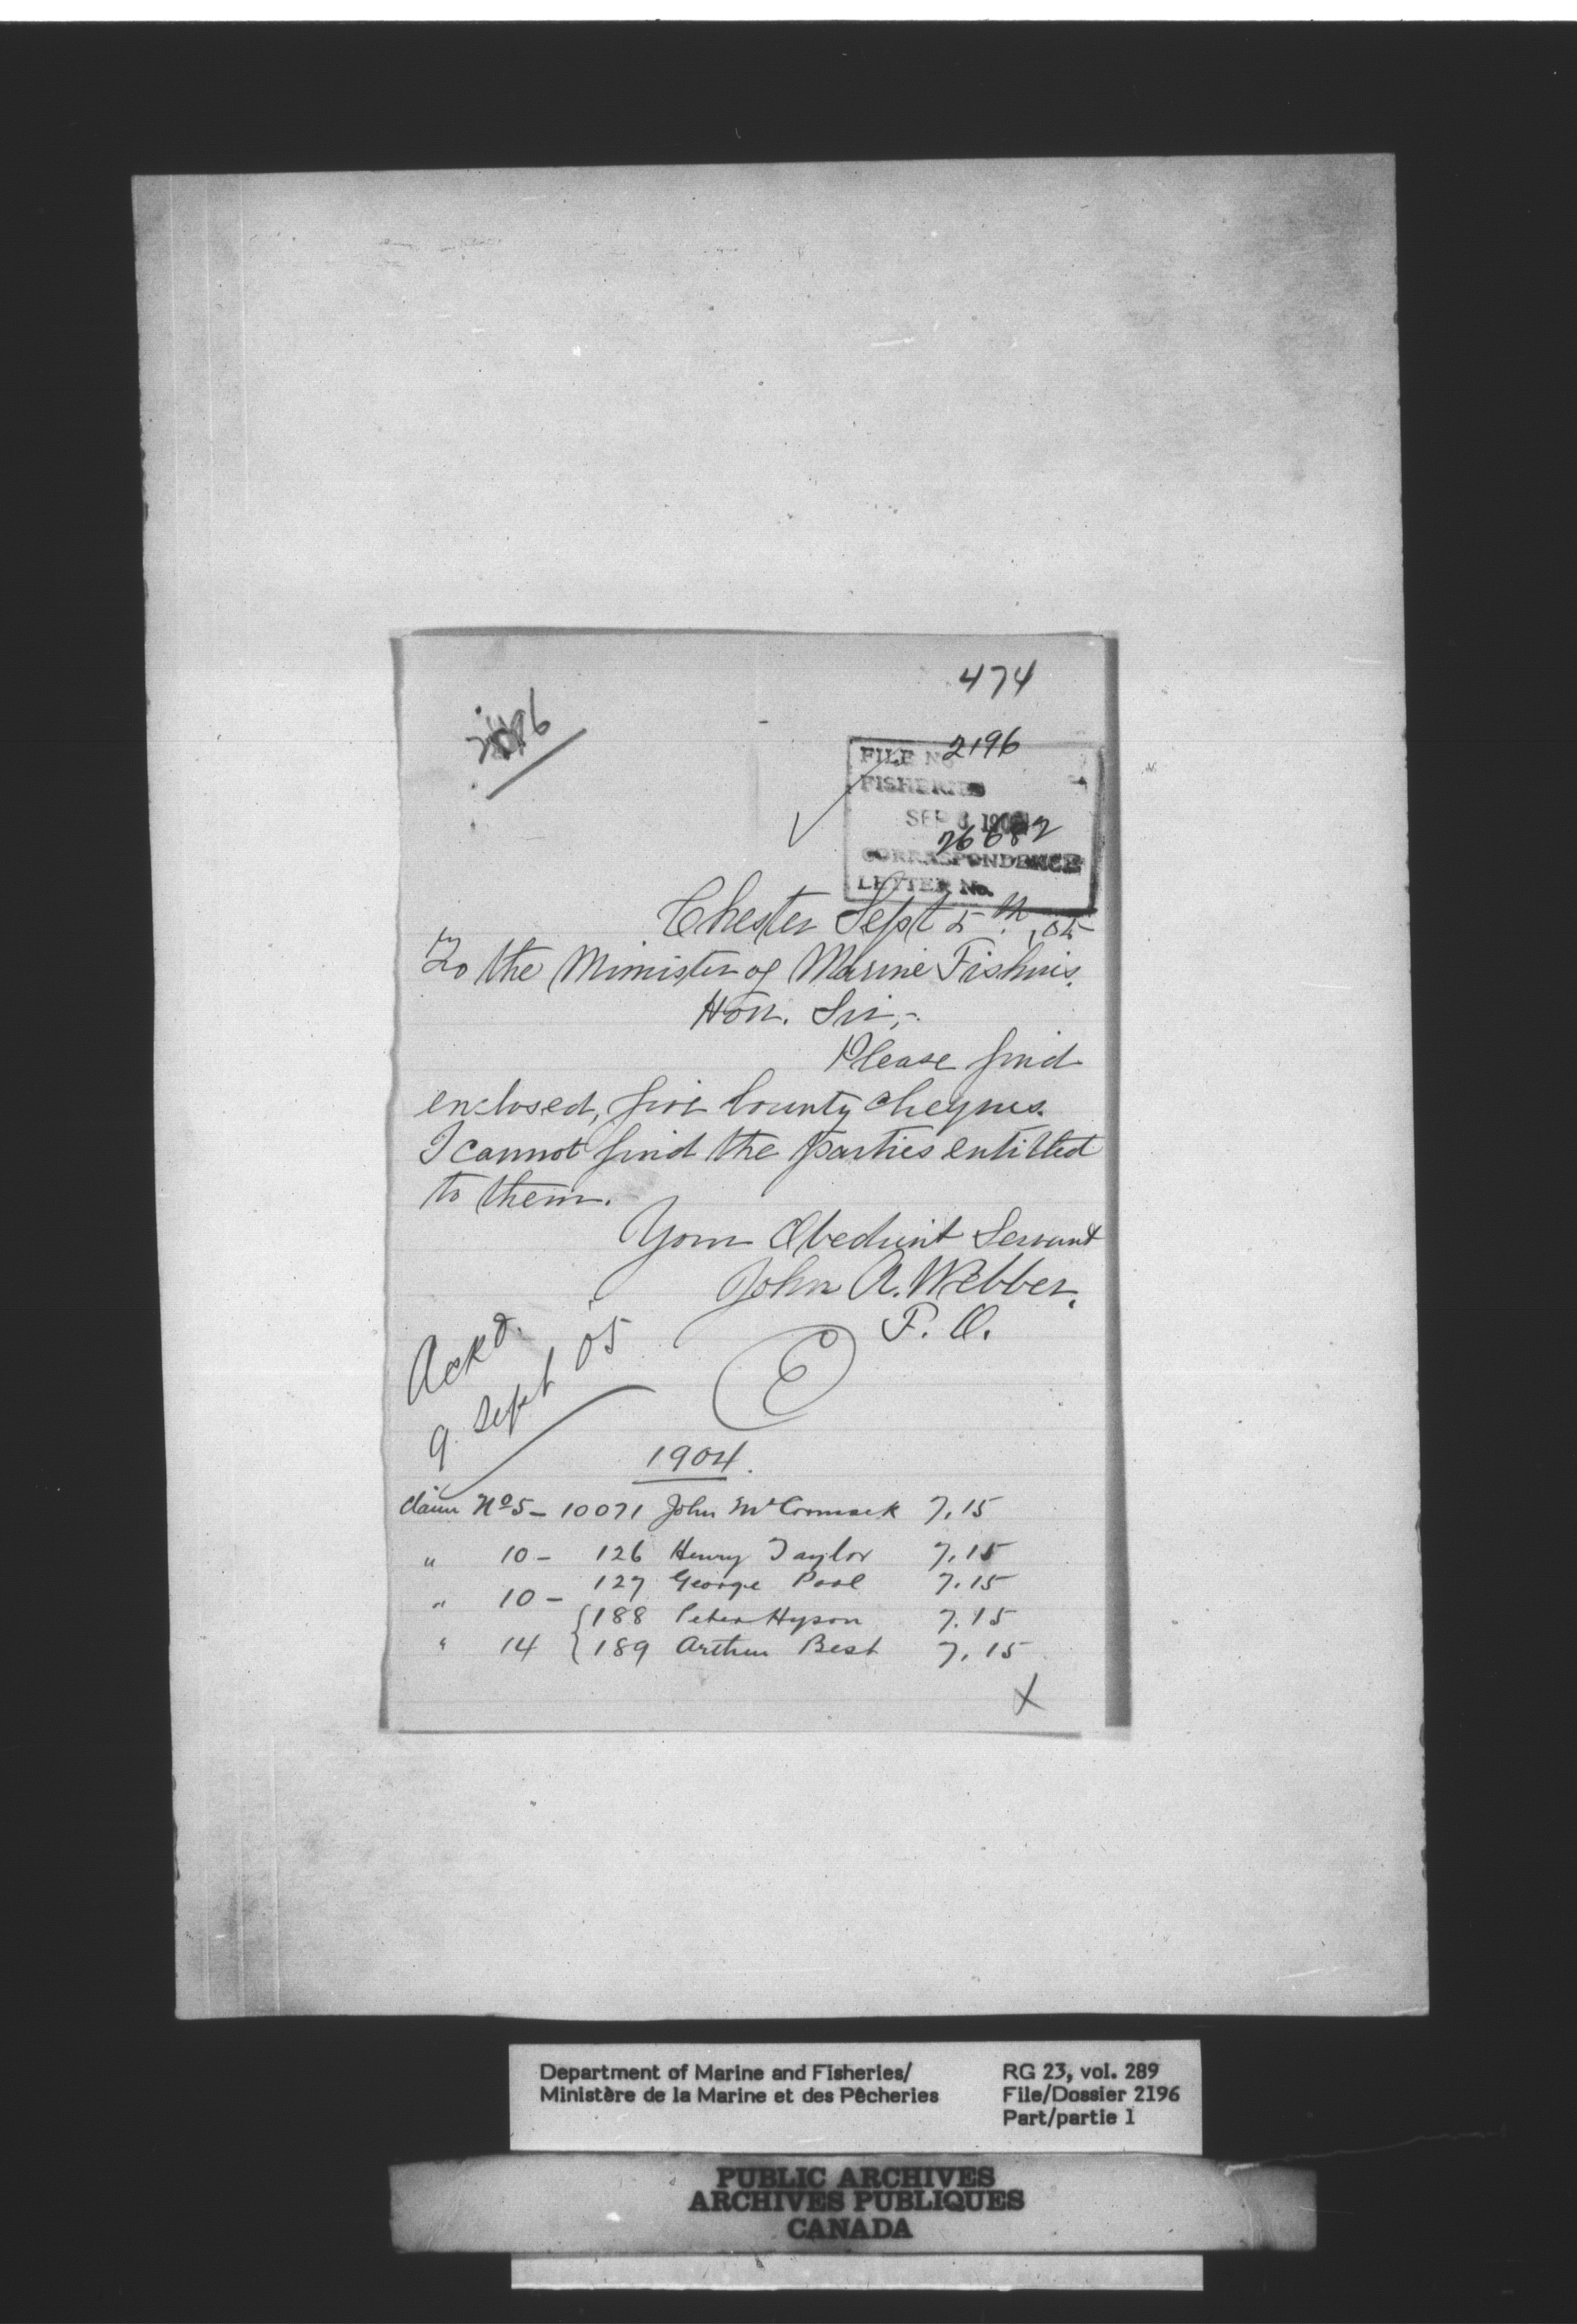 474
2196
FILE No 2196
FISHERIES
SEP
26682
CORRESPONDENCE
LETTER No.
Chester Sept 5th, 05
To the Minister of Marine Fisheries.
Hon. Sir,-
Please find
enclosed, five bounty cheques.
I cannot find the parties entitled
to them.
Your Obedient Servant
John A. Webber.
F. O.
Ackd.
9 Sept 05
E
1904.
Claim No 5 - 10071 John McCormack 7.15
" 10 - 126 Henry Taylor 7.15
" 10 - 127 George Pool 7.15
188 Peter Hyson 7.15
" 14 189 Arthur Best 7.15
X
Department of Marine and Fisheries/
Ministère de la Marine et des Pêcheries
RG 23, vol. 289
File/Dossier 2196
Part/partie 1
PUBLIC ARCHIVES
ARCHIVES PUBLIQUES
CANADA